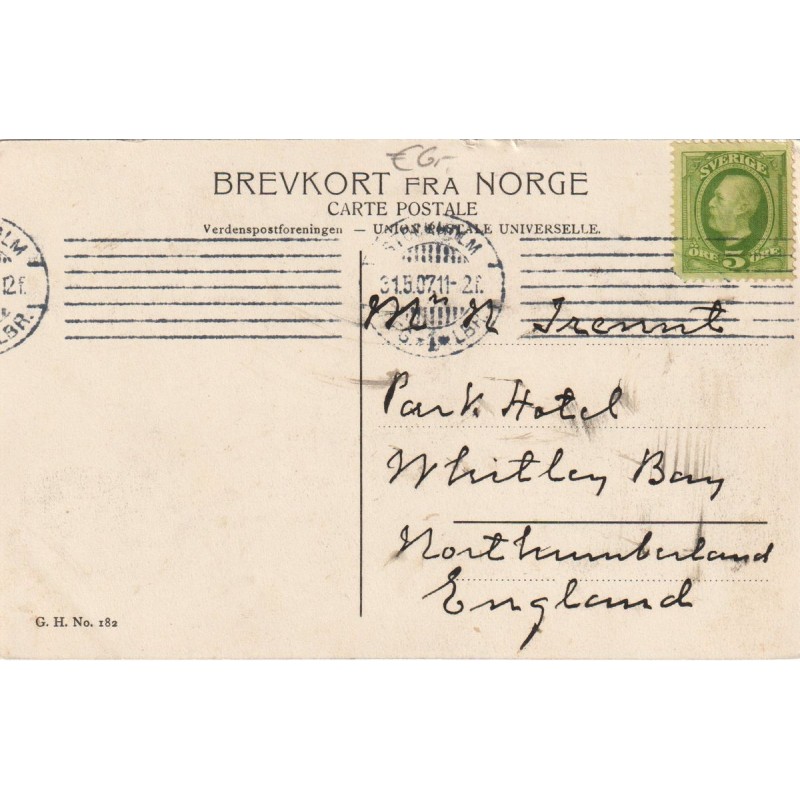 €6,-
BREVKORT FRA NORGE
CARTE POSTALE
Verdenspostforeningen — UNION POSTALE UNIVERSELLE.
SVERIGE
ÖRE 5 ÖRE
STOCKHOLM
31.5.07.11-2f.
1 LBR.
LM
12f.
LBR.
N
Park Hotel
Whitley Bay
Northumberland
England
G. H. No. 182